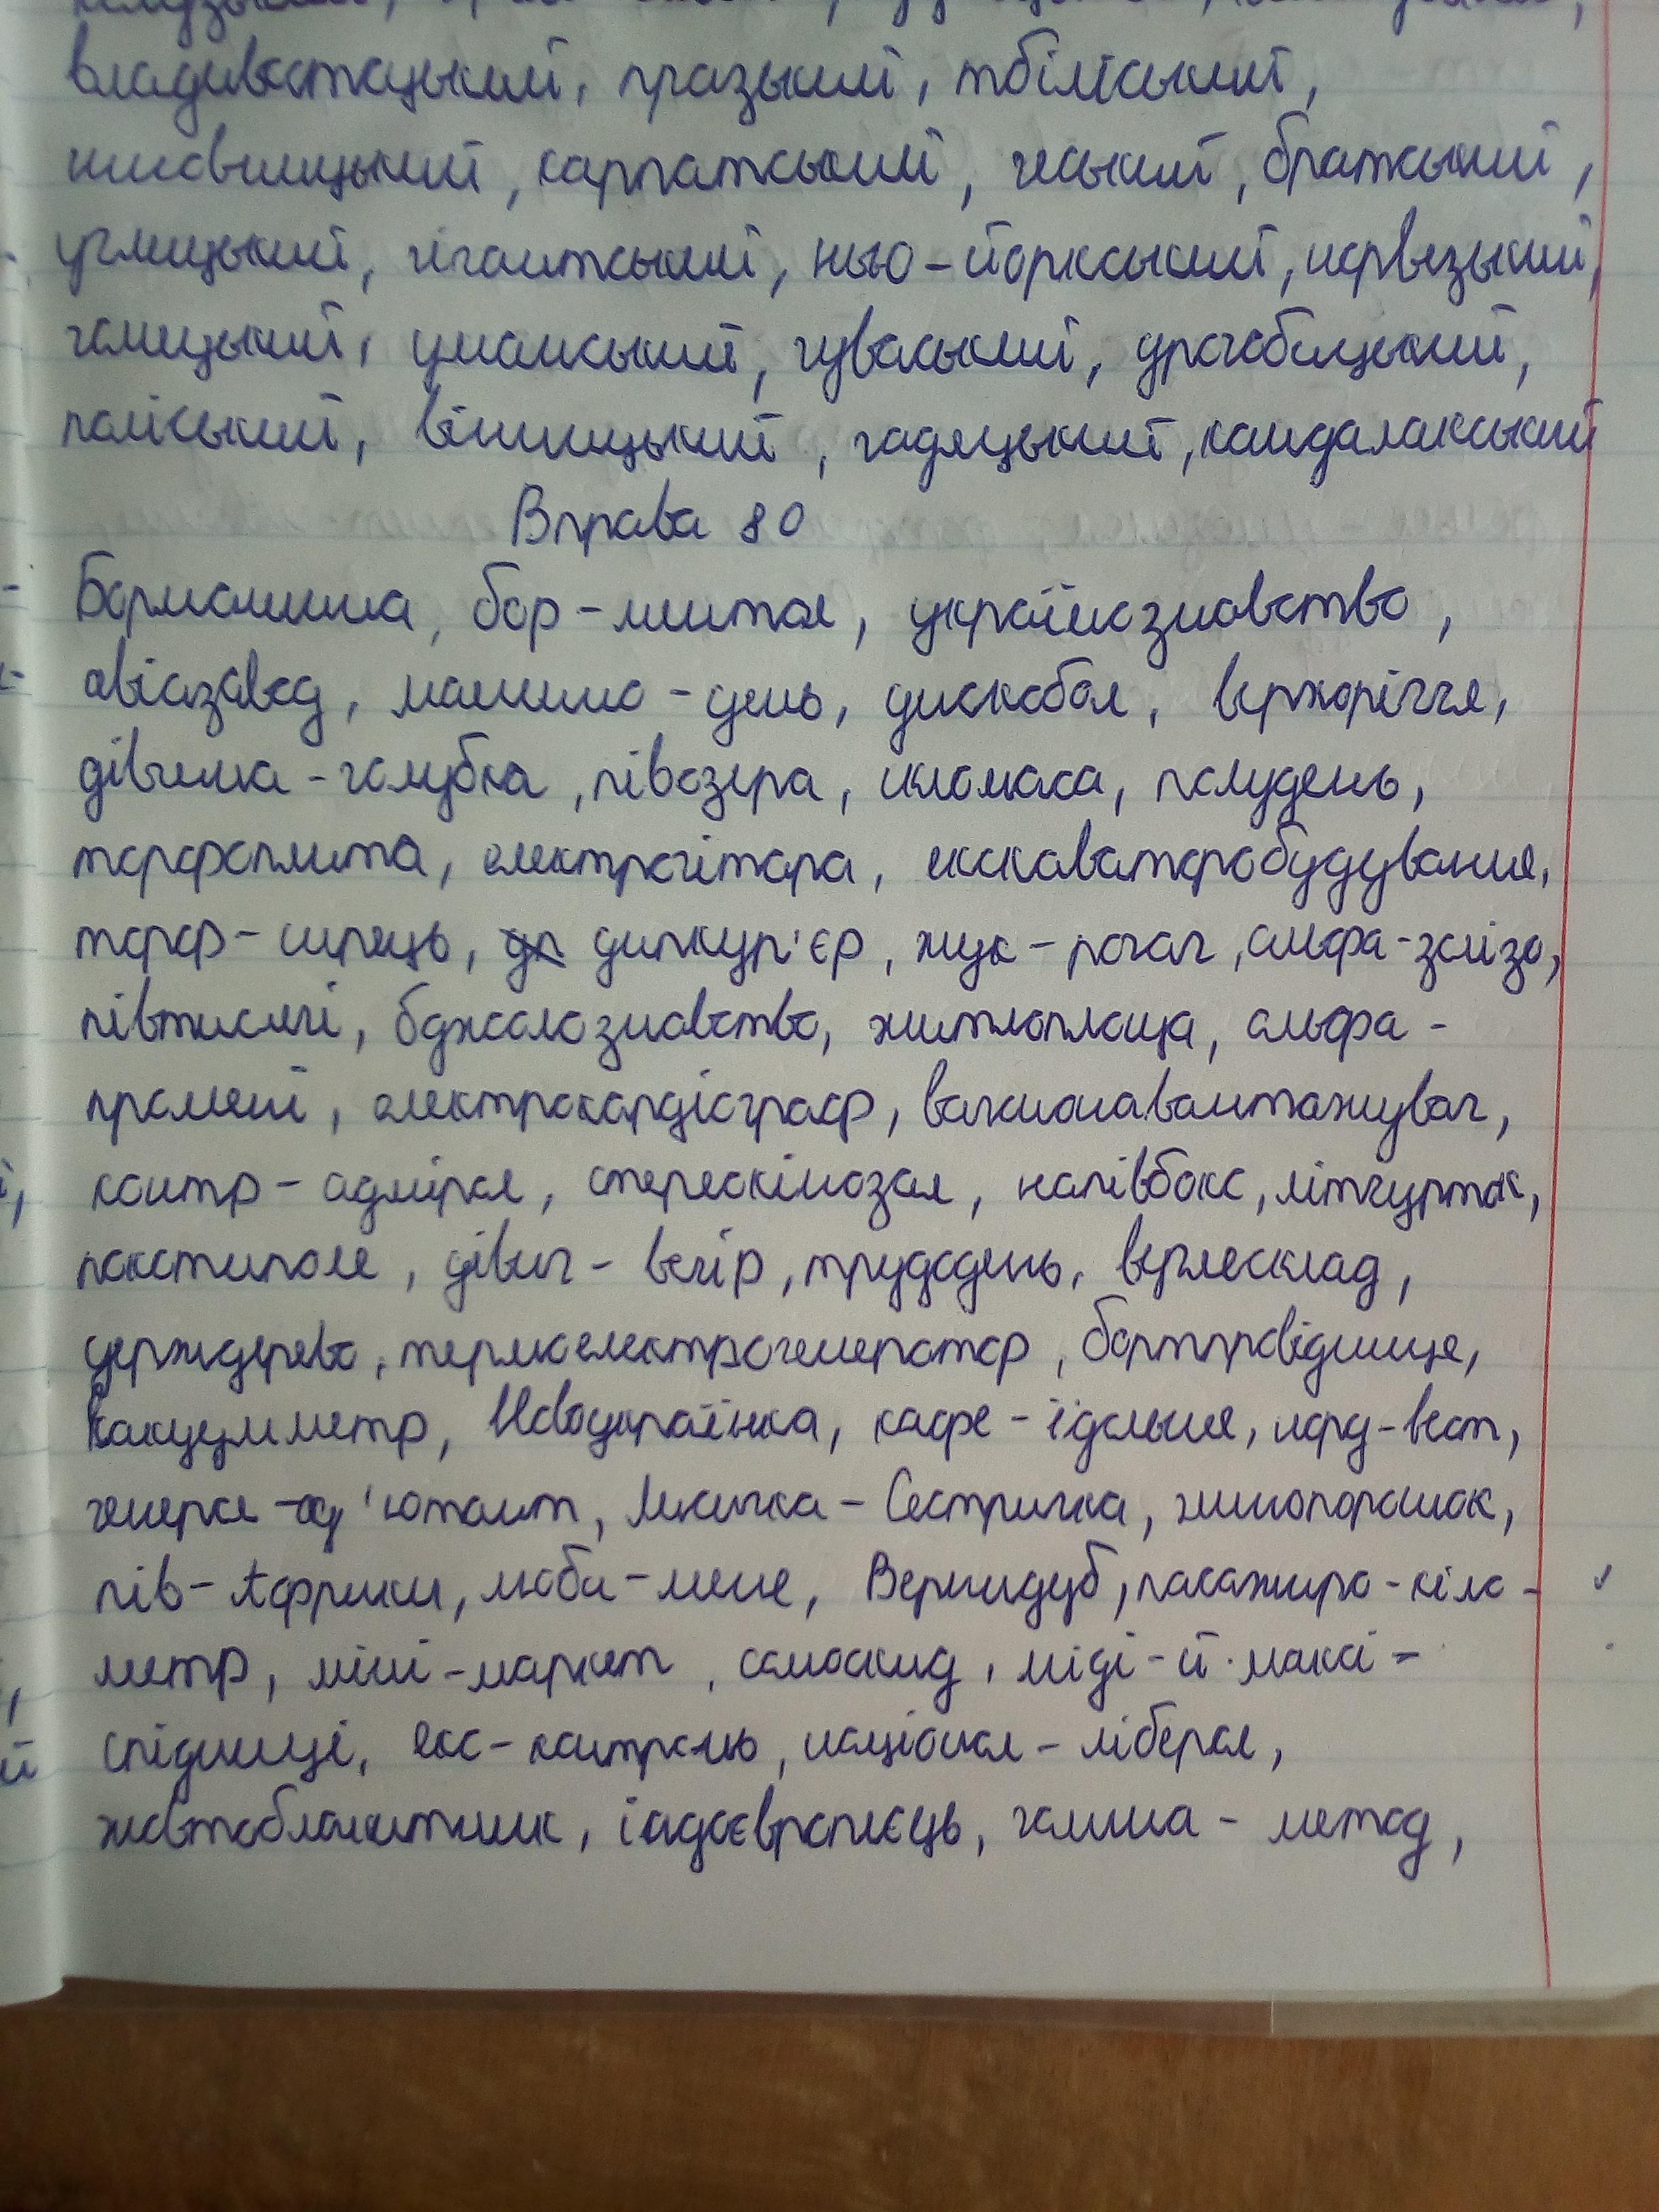 владивостоцький, празький, тбіліський,
карпатський, чеський, братський,
углицький, гігантський, нью-йоркський, норвезький,
галицький, уманський, чуваський, дрогобицький,
поліський, вінницький, гадяцький, кандалакський
Вправа 80
Бормашина, бор-мштал, українознавство,
авіазавод, машино-день, дискобол, верхоріччя,
дівчина-голубка, півозера, скломаса, полудень,
торфоплита, електрогітара, екскаваторобудування,
торф-сирець, дипкур'єр, жук-рогач, альфа-залізо,
півтисячі, бджолознавство, житлоплоща, альфа-
промені, електрокардіограф, вагононавантажувач,
контр-адмірал, стереокінозал, напівбокс, літгурток,
перекотиполе, дівич-вечір, трудодень, вуглесклад,
держдерево, термоелектрогенератор, бортпровідниця,
вакуумметр, Новоукраїнка, кафе-їдальня, норд-вест,
генерал-ад'ютант, Лисичка-Сестричка, жинопорошок,
пів-Африки, люби-мене, Вернидуб, пасажиро-кіло-
метр, міні-маркет, самоскид, міді-й максі-
спідниці, екс-контроль, націонал-ліберал,
жовтоблакитник, індоєвропеєць, гамма-метод,